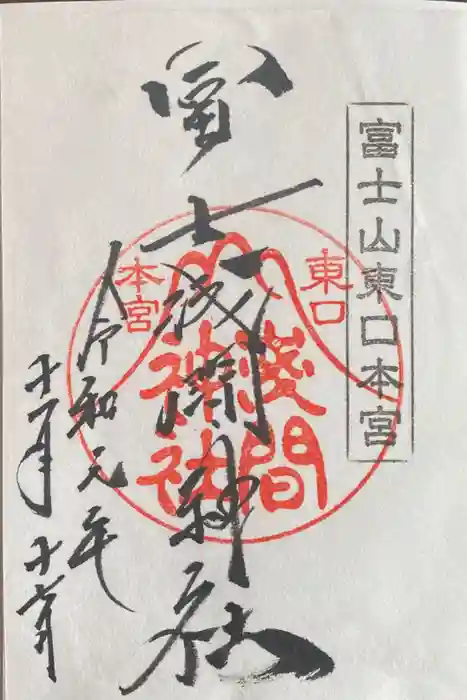 富士山東口本宮
冨士浅間神社
東口
本宮
浅間
神社
令和元年
十一月十六日